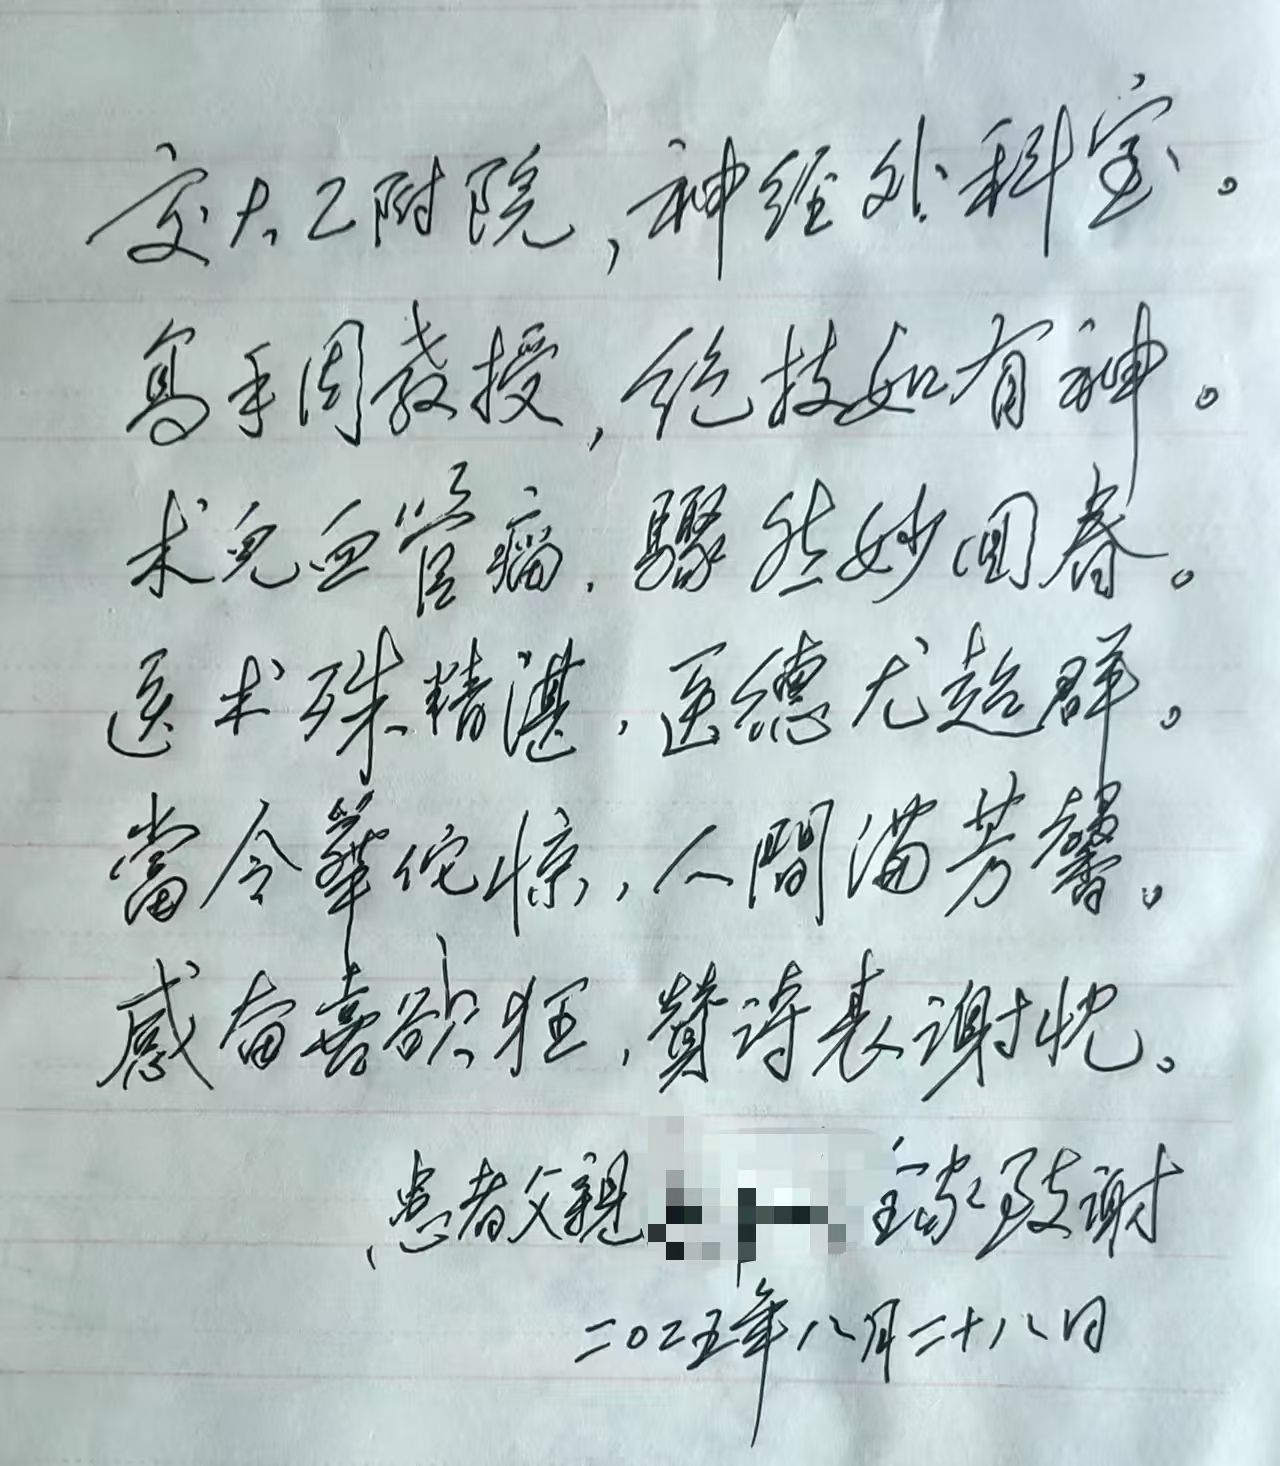 交大乙附院，神经外科室。
高手周教授，绝技如有神。
术克血管瘤，骤然妙回春。
医术殊精湛，医德尤超群。
當今華佗惊，人間满芳馨。
感奋喜欲狂，赞诗表谢忱。
患者父親 全家致谢
二〇二五年八月二十八日